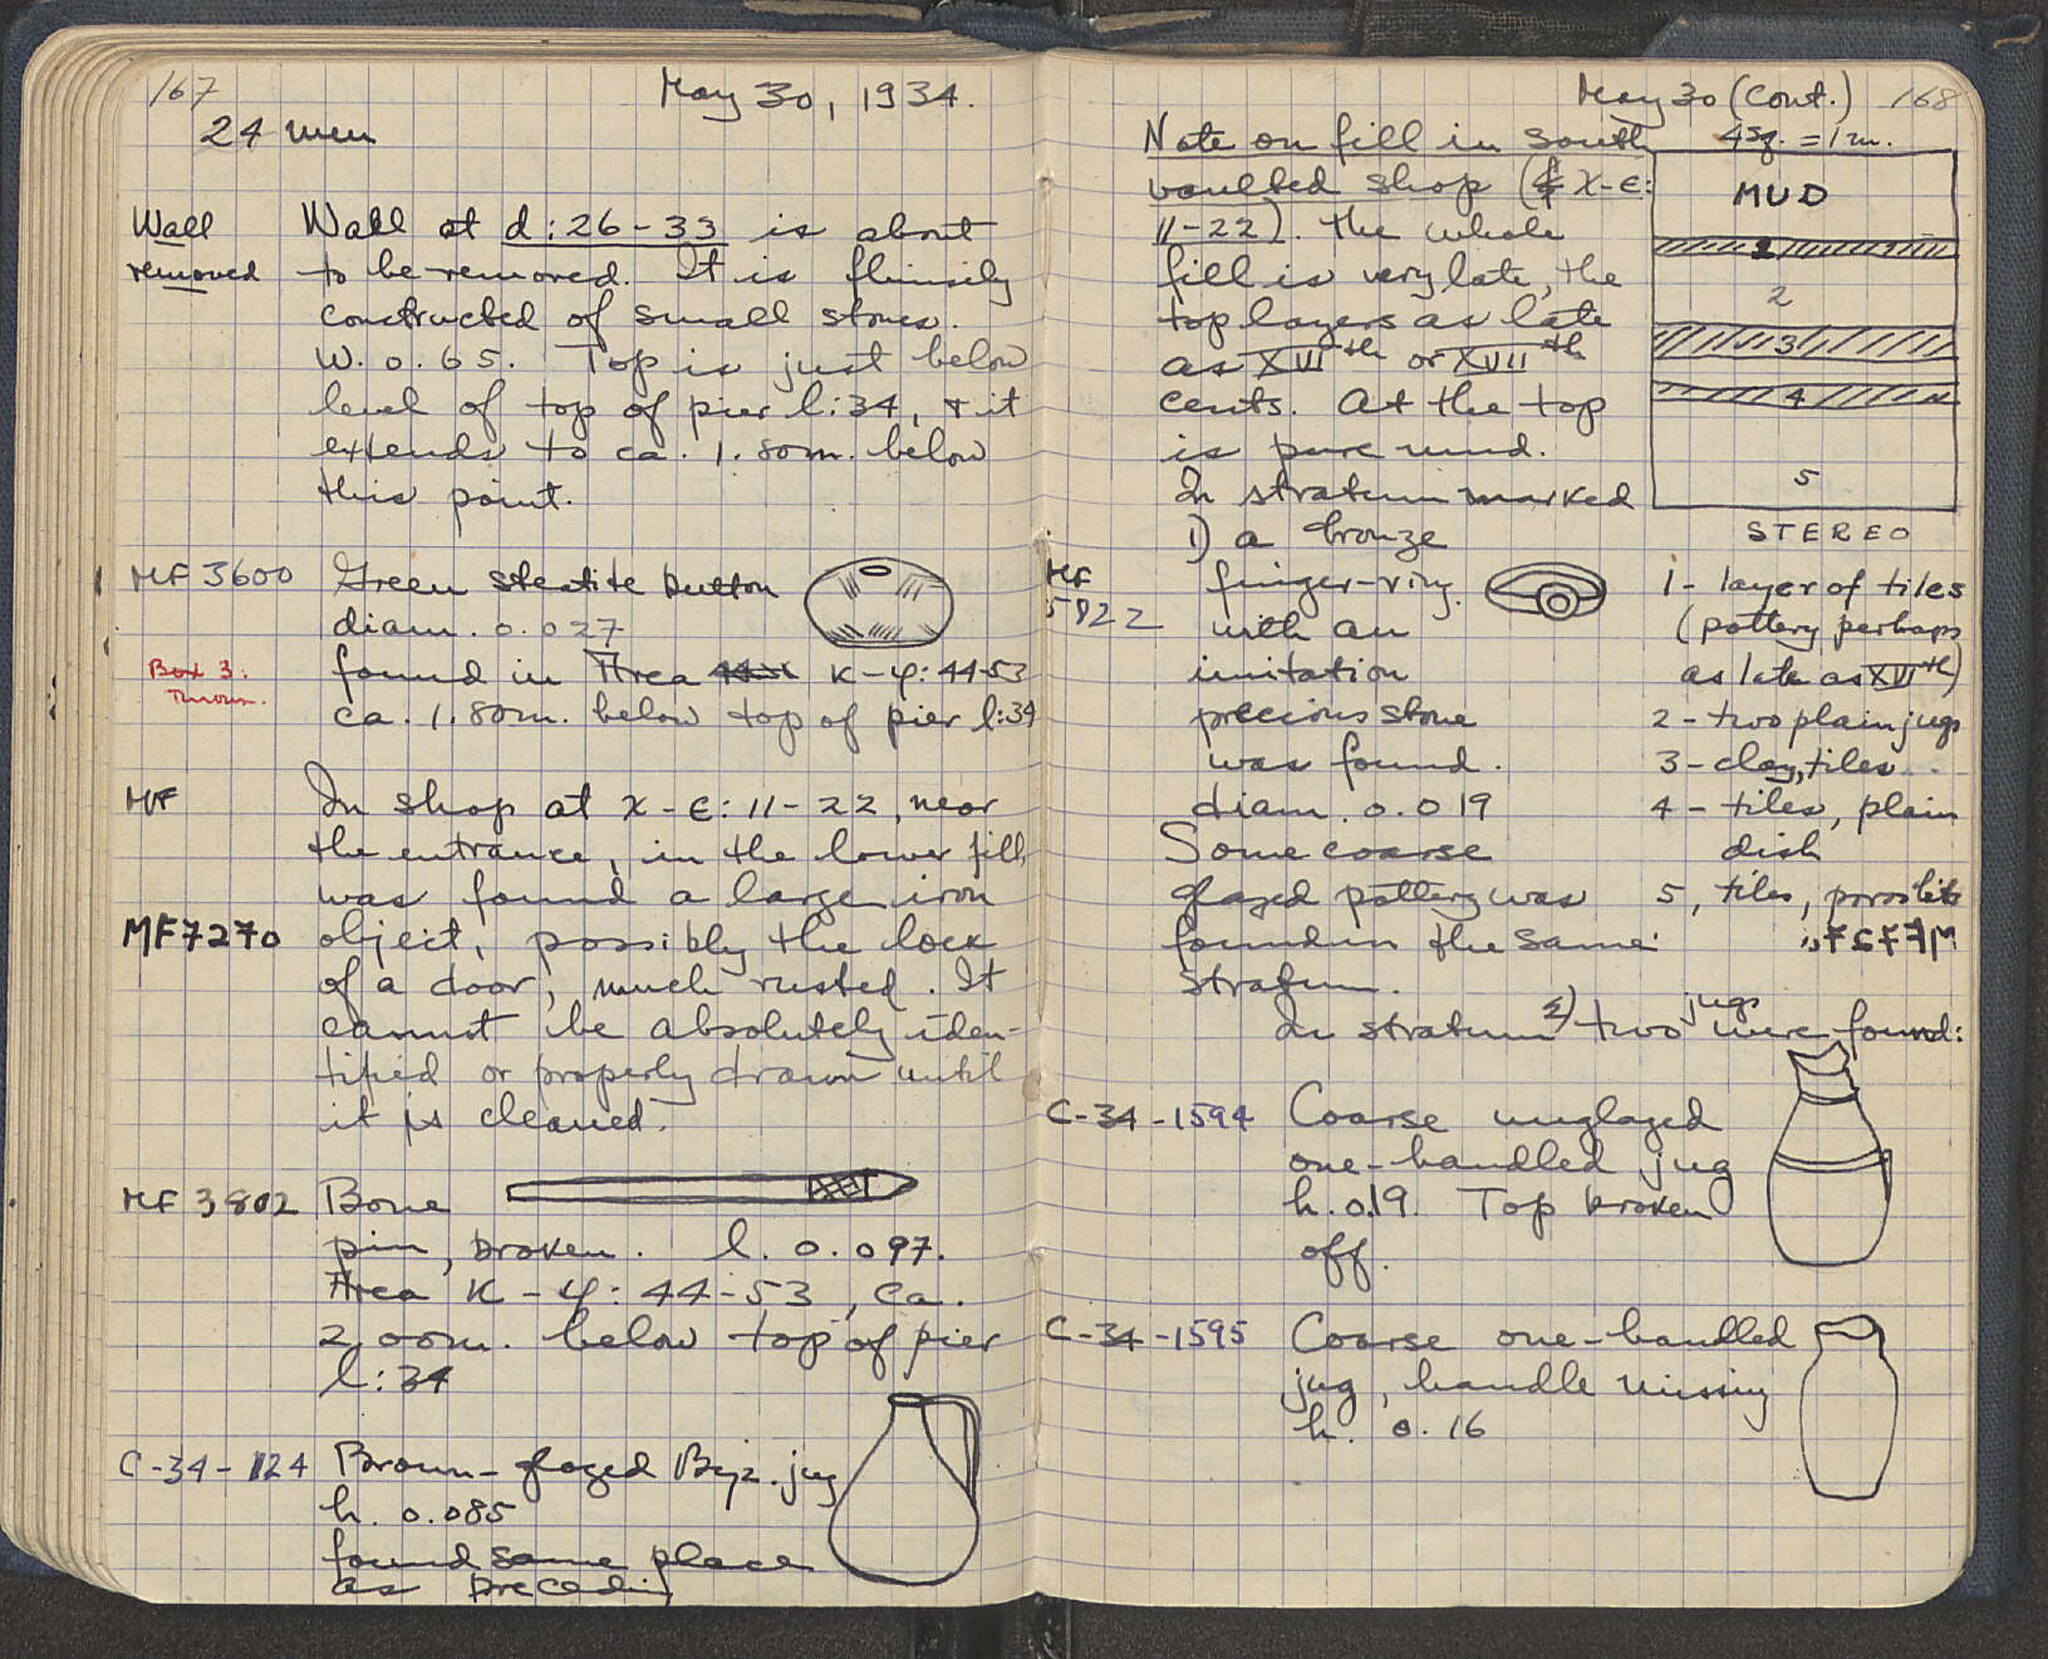 167
May 30, 1934.
24 men
Wall removed
Wall at d:26-33 is about
to be removed. It is flimsily
constructed of small stones.
W. 0.65. Top is just below
level of top of pier l:34, & it
extends to ca. 1.80m. below
this point.
MF 3600
Green steatite button
diam. 0.027
Box 3:
found in Area K-φ: 44-53
ca. 1.80m. below top of pier l:34
MF
In shop at X-E: 11-22, near
the entrance, in the lower fill,
was found a large iron
MF7270
object, possibly the lock
of a door, much rusted. It
cannot be absolutely iden-
tified or properly drawn until
it is cleaned.
MF 3802
Bone
pin, broken. l. 0.097.
Area K-φ: 44-53, ca.
2.00m. below top of pier
l:34
C-34-1124
Brown-glazed Byz. jug
h. 0.085
found same place
as preceding
May 30 (cont.) 168
Note on fill in south
vaulted shop (X-E:
11-22). The whole
fill is very late, the
top layers as late
as XVIth or XVIIth
cents. At the top
is pure mud.
In stratum marked
1) a bronze
MF
5822
finger-ring
with an
imitation
precious stone
was found.
diam. 0.019
Some coarse
glazed pottery was
found in the same
stratum.
4 sq. = 1 m.
MUD
1
2
3
4
5
STEREO
1 - layer of tiles
(pottery perhaps
as late as XVIth)
2 - two plain jugs
3 - clay, tiles
4 - tiles, plain
dish
5, tiles, poros
In stratum 2) two jugs were found:
C-34-1594
Coarse unglazed
one-handled jug
h. 0.19. Top broken
off.
C-34-1595
Coarse one-handled
jug, handle missing
h. 0.16